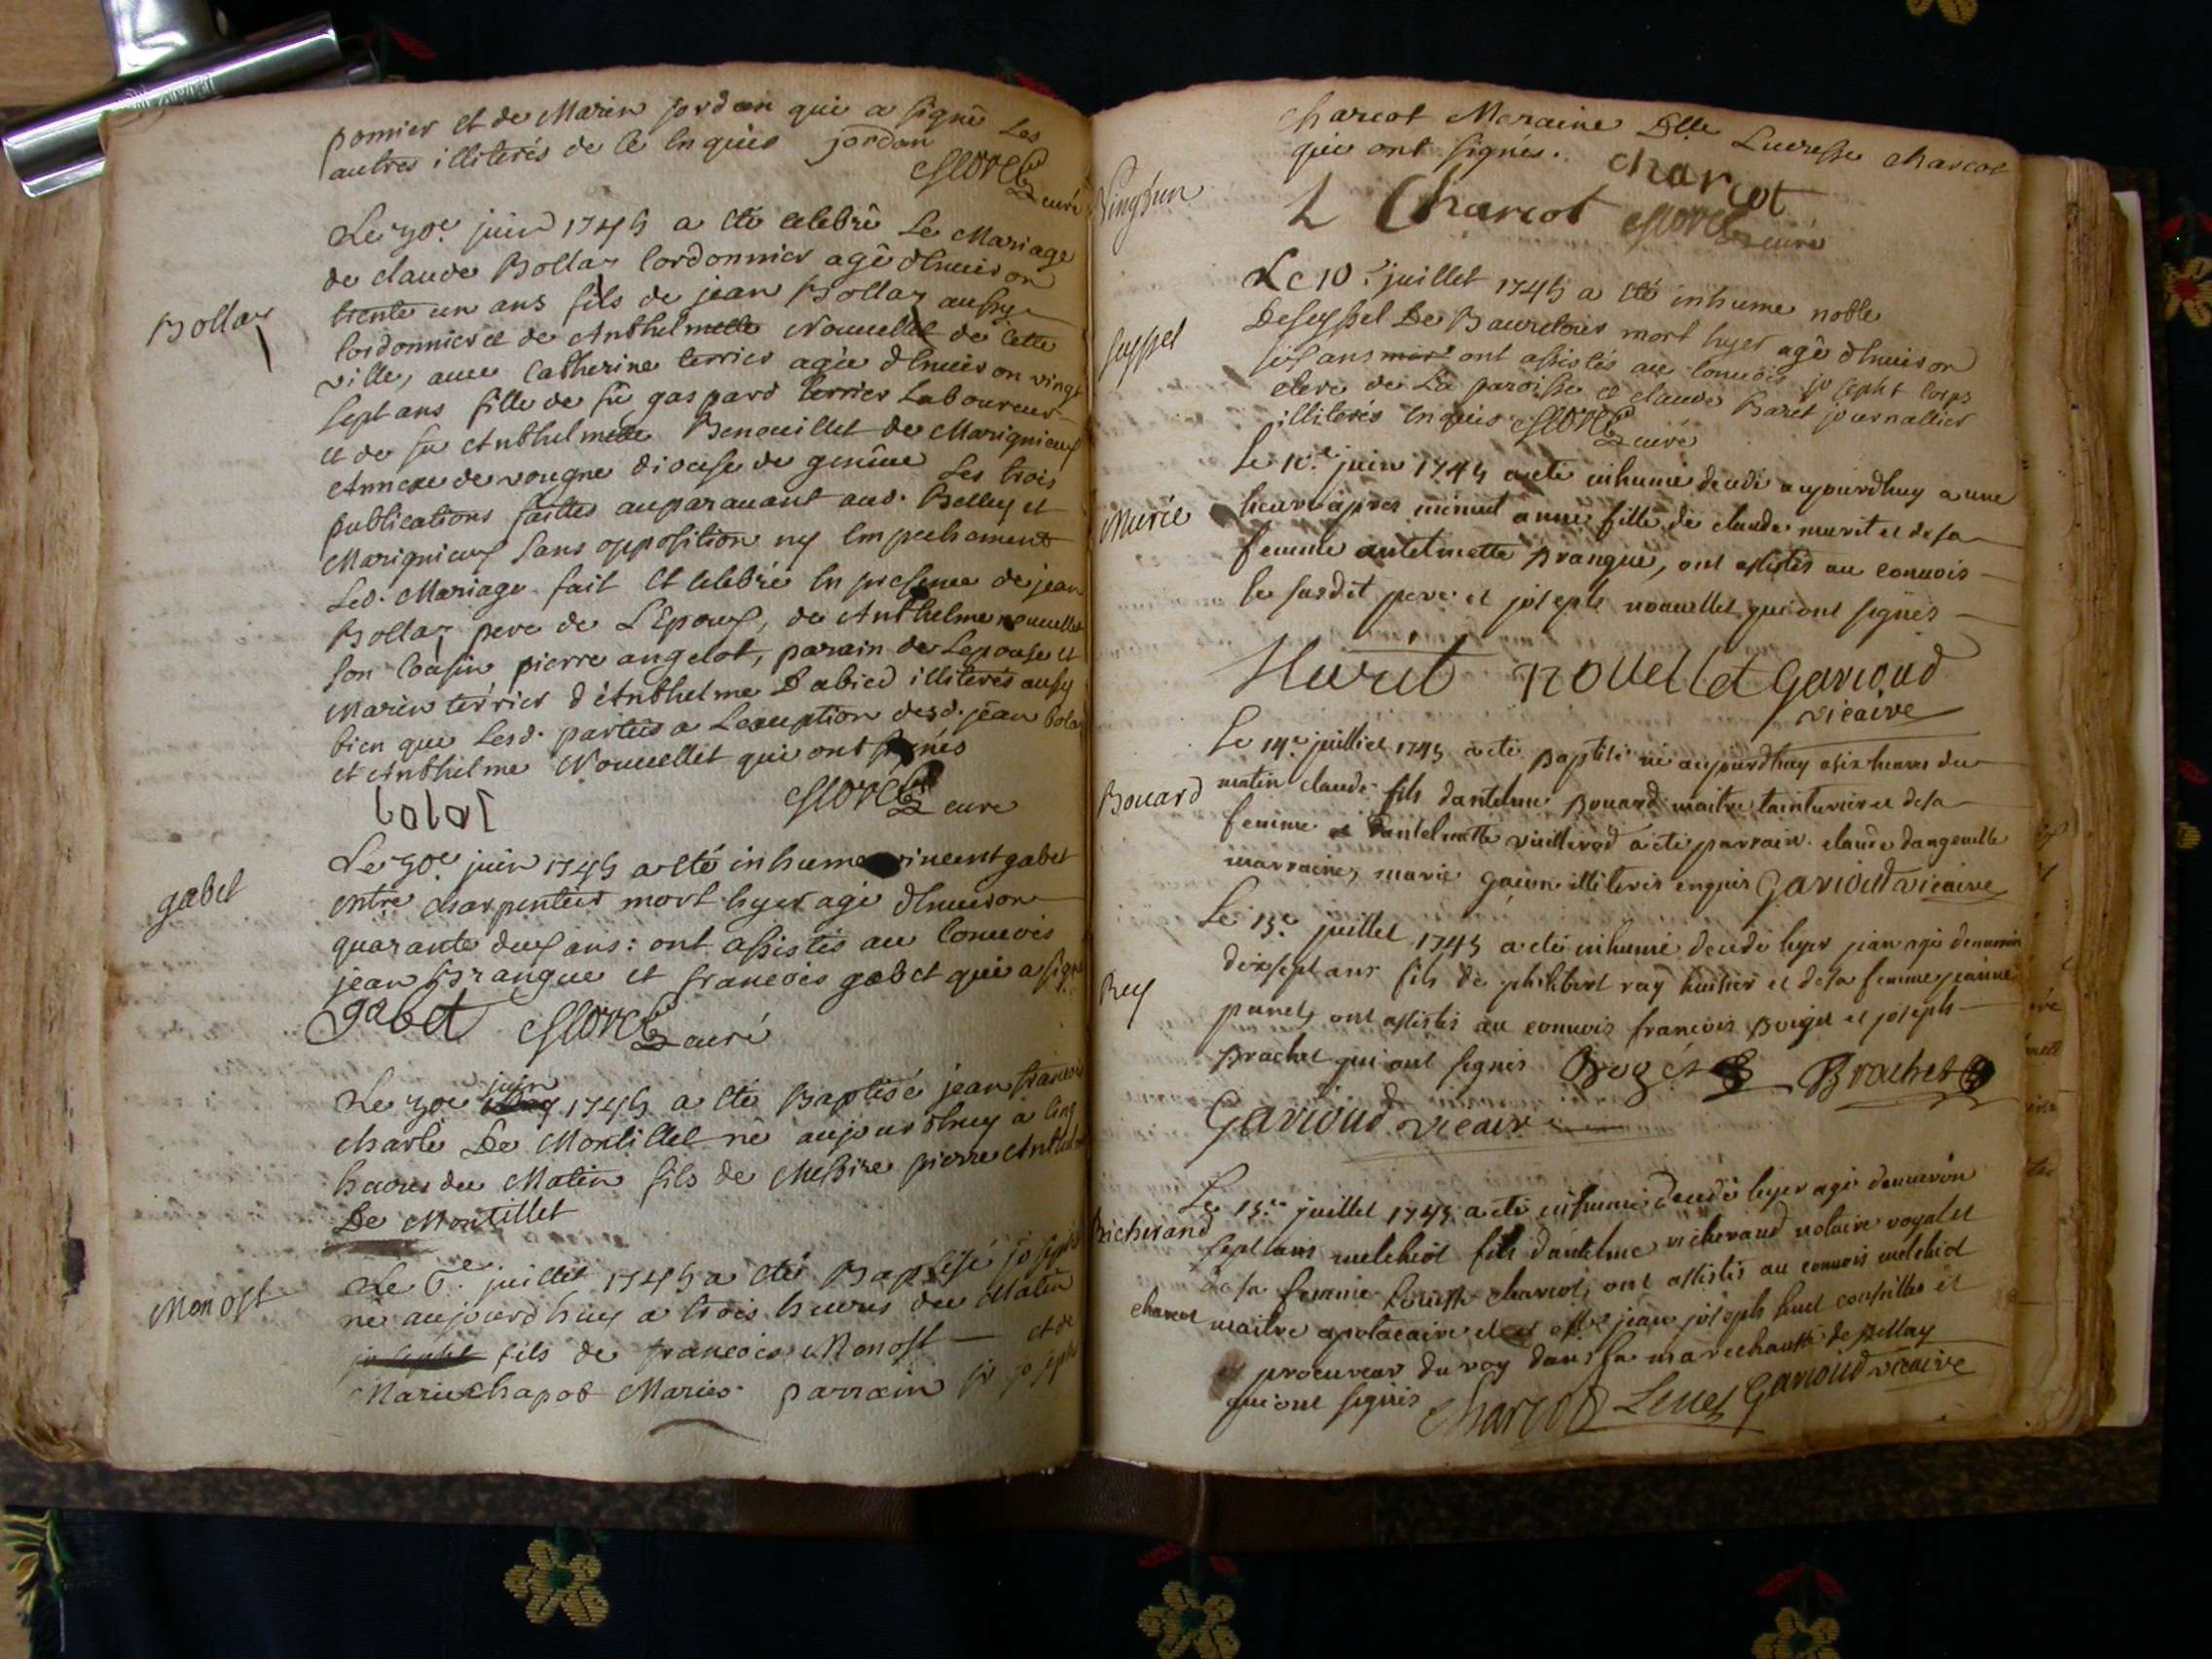 pomier et de Marin jordan qui a signé Les
autres illiterés de ce Enquis jordan
curé
Bollaz
Le 30e. juin 1745 a été celebré Le Mariage
de claude Bollaz Cordonnier agé d'Enuiron
trente un ans fils de jean Bollaz aussy
Cordonnier et de Anthelmette Nouuellet de cette
ville, auec Catherine terrier agée d'Enuiron vingt
sept ans fille de fû gaspard terrier Laboureur
et de fû Anthelmette Benouillet de Marignieux
Annexe de vougne diocese de genéue Les trois
publications faittes auparauant aud. Belley et
Marignieux Sans opposition ny Empechement
Led. Mariage fait Et Celebré En presence de jean
Bollaz pere de L'Epoux, de Anthelme nouuellet
Son Cousin pierre angelot, parain de Lepouse et
Marin terrier d'Anthelme Babied illiterés aussy
bien que Lesd. parties a Lexception desd. jean bola
et Anthelme Nouuellet qui ont signés
bolaz
curé
gabet
Le 30e. juin 1745 a eté inhumé vincent gabet
entre charpentier mort hyer agé d'Enuiron
quarante deux ans: ont assistés au Conuois
jean Brangue et francois gabet qui a signé
gabet curé
Le 30e juin 1745 a eté Baptisé jean francois
charle De Montillet né aujourdhuy à Cinq
heures du Matin fils de Messire pierre Anthelme
De Montillet
Monost
Le 6e. juillet 1745 a eté Baptisé joseph
né aujourdhuy a trois heures du Matin
fils de francois Monost — et de
Marie chapot Mariés parrain joseph

charcot Maraine Dlle Lucresse charcot
qui ont signés. charcot
L Charcot curé
Seyssel
Le 10e. juillet 1745 a eté inhume noble
De seyssel De Bauretour mort hyer agé d'Enuiron
six ans ont assistés au Conuois joseph t Corps
clerc de La paroisse et claude Baret journallier
illiterés Enquis curé
Murie
Le 10.e juin 1745 a eté inhumé decedé aujourdhuy a une
heure apres minuit anne fille de claude murit et de sa
femme antelmette Brangue, ont assistés au conuois
le susdit pere et joseph nouuellet qui ont signés
Murit nouellet Garioud
vicaire
Bouard
Le 14.e juillet 1745 a eté Baptisé né aujourdhuy a six heures du
matin claude fils dantelme Bouard maitre tainturier et de sa
femme dantelmette vuillerod a eté parrain claude dangeuille
marraine, marie gacon illiterés enquis Garioud vicaire
Rey
Le 15.e juillet 1745 a eté inhumé decedé hyer jean agé denuiron
dixsept ans fils de philibert ray huissier et de sa femme jeanne
panet, ont assistés au conuois francois Boget et joseph
Brachet qui ont signés Bogés Brachet
Garioud vicaire
Richerand
Le 15.e juillet 1745 a eté inhumé decedé hyer agé denuiron
sept ans melchiot fils dantelme richerand notaire royal et
de sa femme charcot, ont assistés au conuois melchiot
charcot maitre apotacaire et jean joseph Luet conseiller et
procureur du roy dans la marechaussé de Bellay
qui ont signés charcot Garioud vicaire